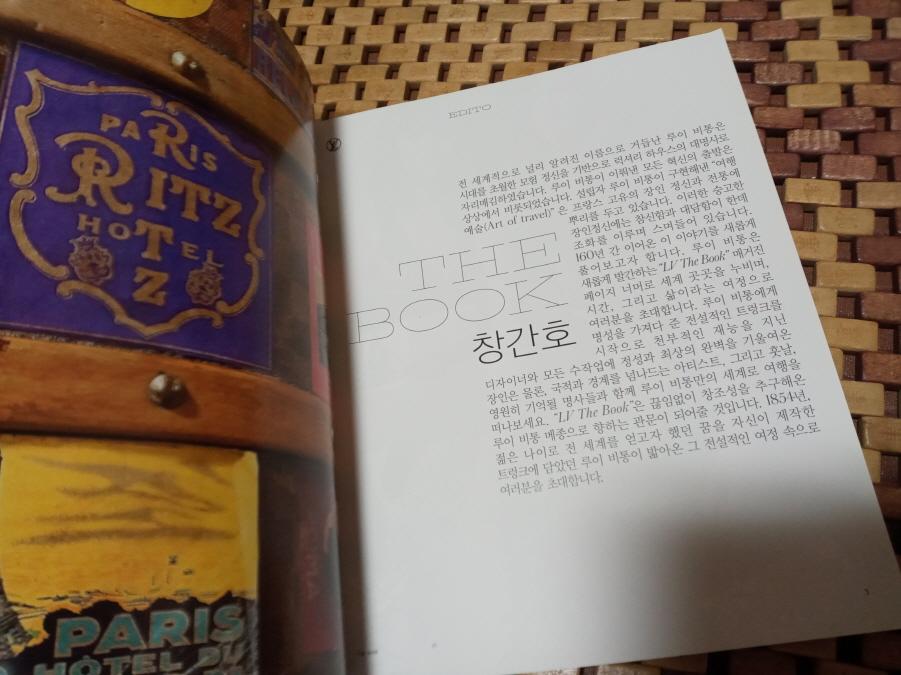 PARIS
RITZ
HOTEL
TZ
PARIS
HÔTEL DU
EDITO
전 세계적으로 널리 알려진 이름으로 거듭난 루이 비통은
시대를 초월한 모험 정신을 기반으로 럭셔리 하우스의 대명사로
자리매김하였습니다. 루이 비통이 이뤄낸 모든 혁신의 출발은
상상에서 비롯되었습니다. 설립자 루이 비통이 구현해낸 “여행
예술(Art of travel)” 은 프랑스 고유의 장인 정신과 전통에
뿌리를 두고 있습니다. 이러한 숭고한
장인정신에는 참신함과 대담함이 한데
조화를 이루며 스며들어 있습니다.
160년 간 이어온 이 이야기를 새롭게
풀어보고자 합니다. 루이 비통은
새롭게 발간하는 “LV The Book” 매거진
페이지 너머로 세계 곳곳을 누비며,
시간, 그리고 삶이라는 여정으로
여러분을 초대합니다. 루이 비통에게
명성을 가져다 준 전설적인 트렁크를
시작으로 천부적인 재능을 지닌
THE
BOOK
창간호
디자이너와 모든 수작업에 정성과 최상의 완벽을 기울여온
장인은 물론, 국적과 경계를 넘나드는 아티스트, 그리고 훗날,
영원히 기억될 명사들과 함께 루이 비통만의 세계로 여행을
떠나보세요. “LV The Book”은 끊임없이 창조성을 추구해온
루이 비통 메종으로 향하는 관문이 되어줄 것입니다. 1854년,
젊은 나이로 전 세계를 얻고자 했던 꿈을 자신이 제작한
트렁크에 담았던 루이 비통이 밟아온 그 전설적인 여정 속으로
여러분을 초대합니다.